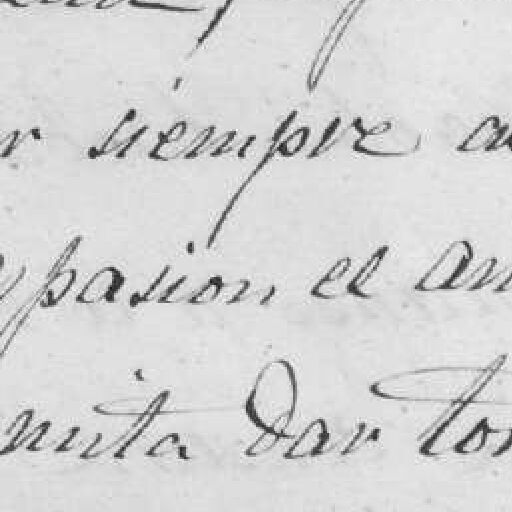 r siempre a
y pasion, el am
mita dar tor